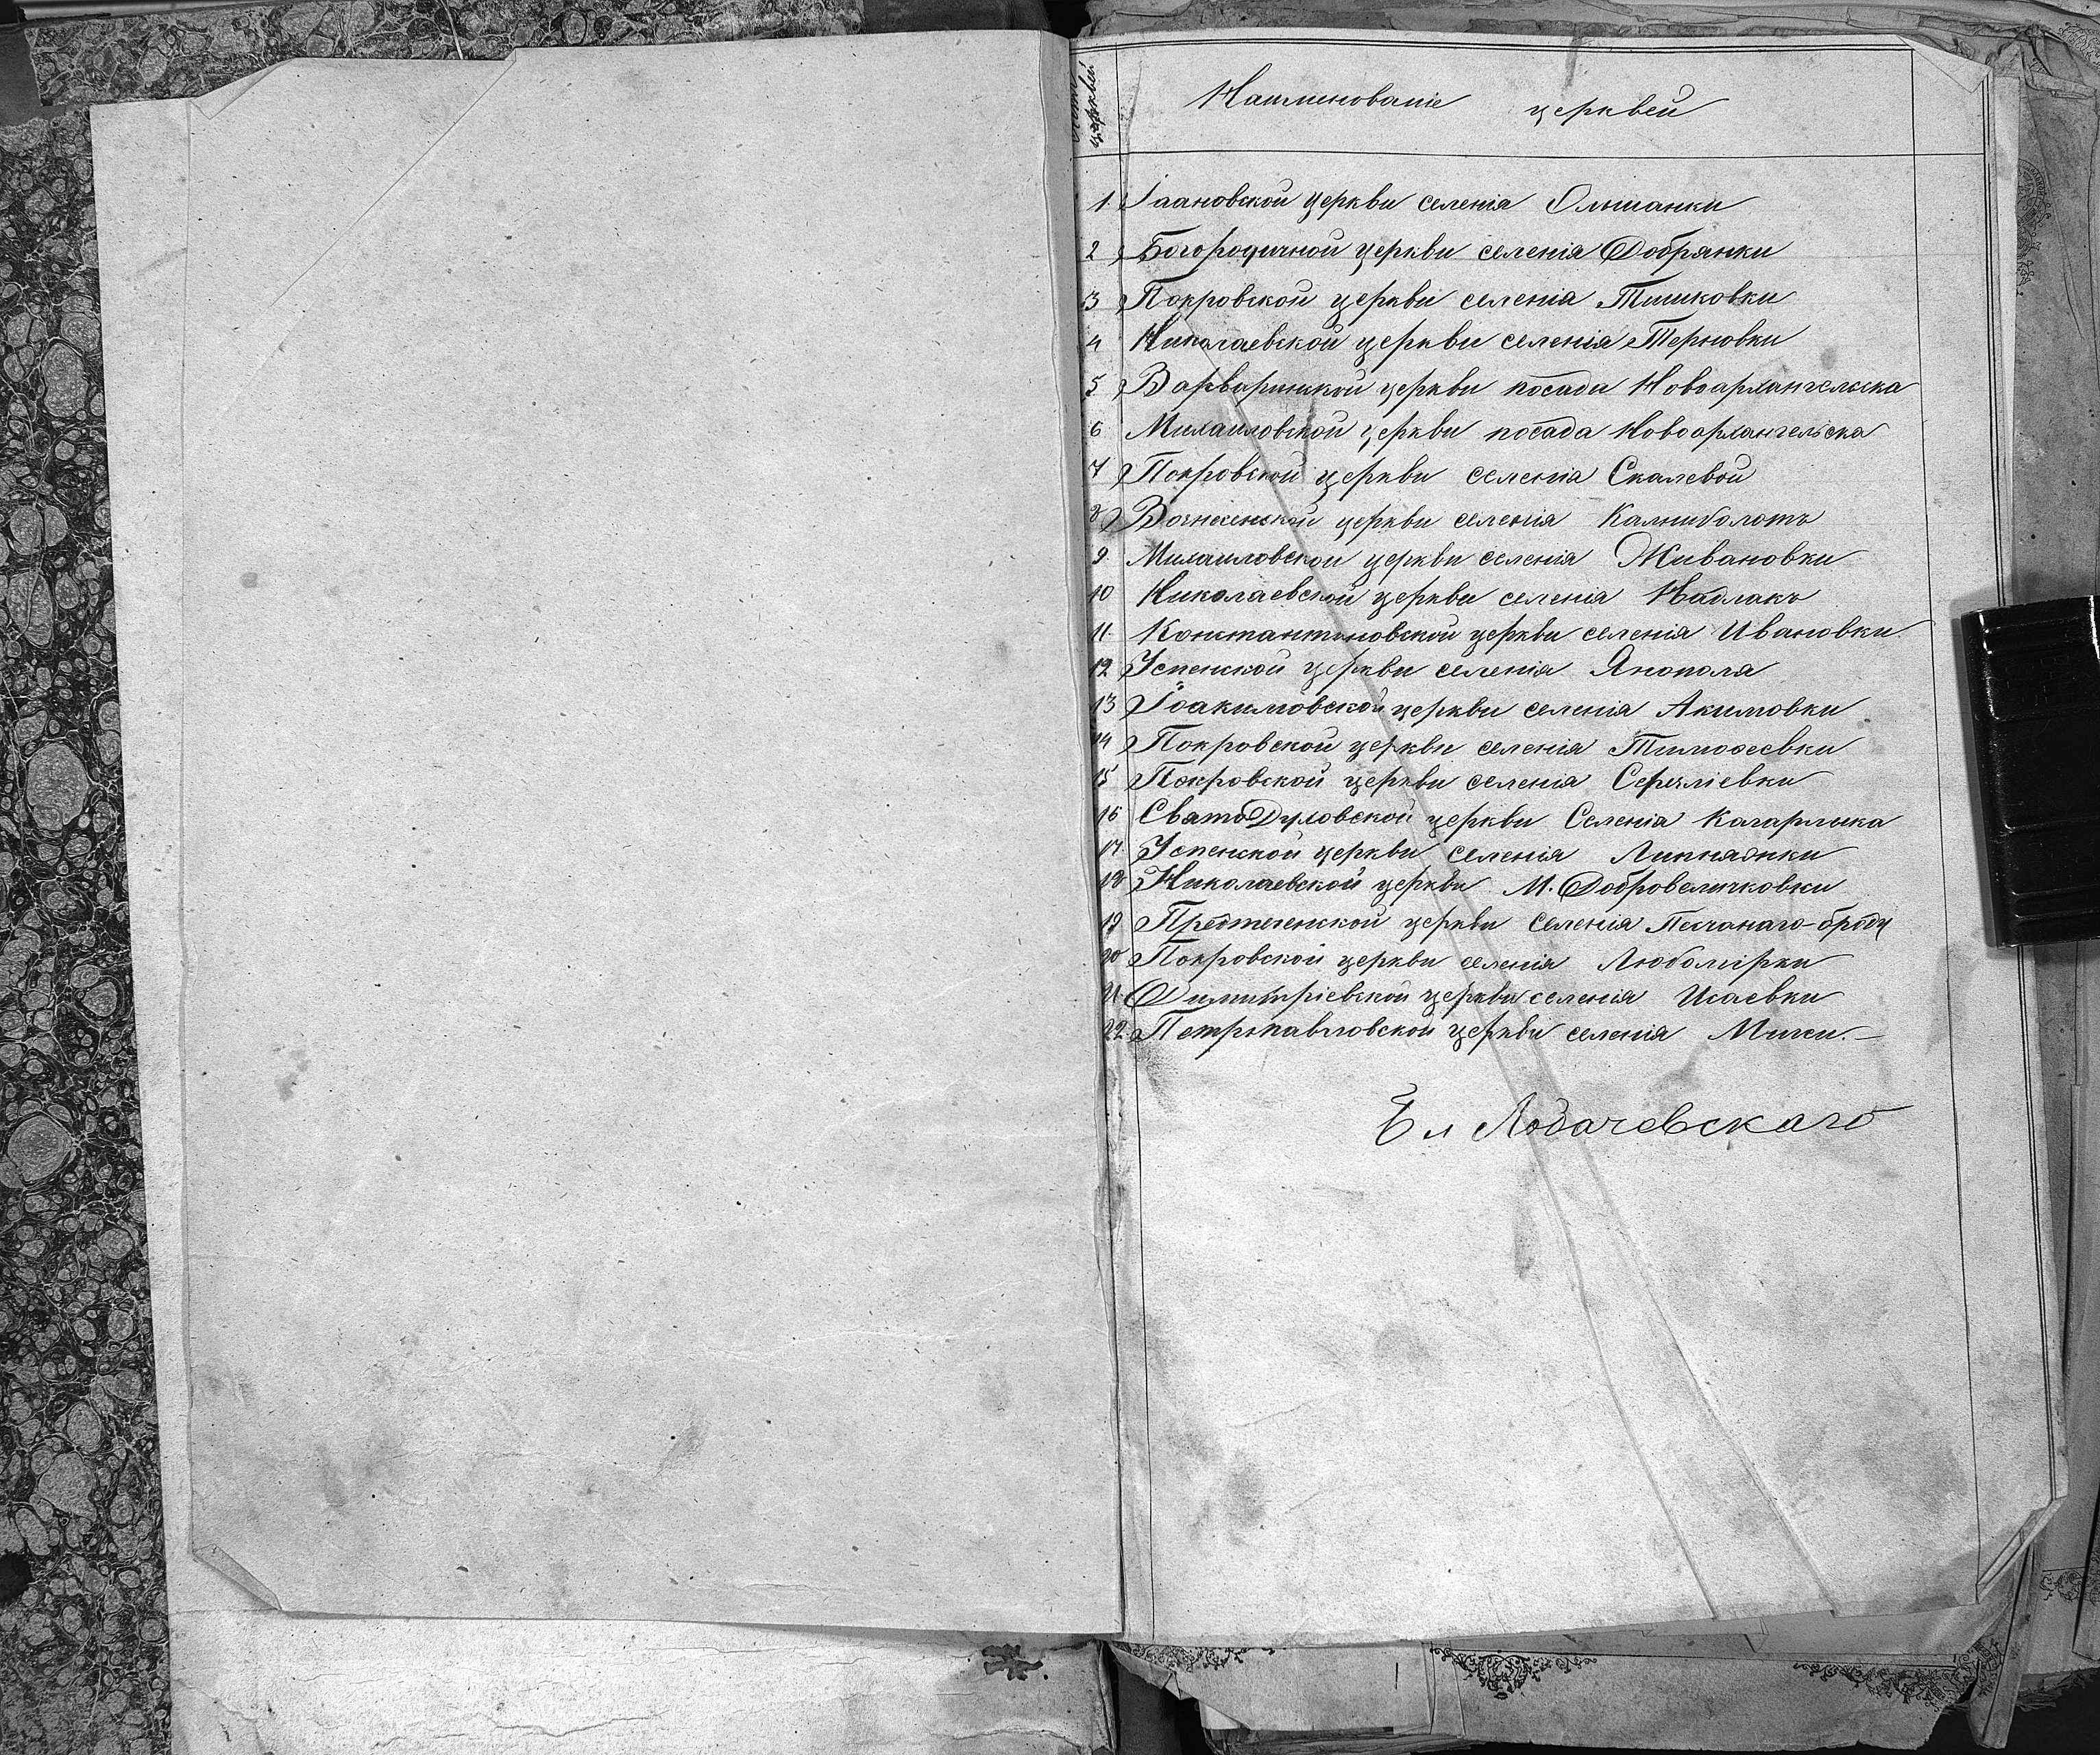 церквей
Наименованіе церквей
1. Іоановской церкви селенія Ольшанки
2 Богородичной церкви селенія Добрянки
3 Покровской церкви селенія Тишковки
4 Николаевской церкви селенія Терновки
5 Варваринской церкви посада Новоархангельска
6 Михаиловской церкви посада Новоархангельска
7 Покровской церкви селенія Скалевой
8 Вознесенской церкви селенія Калниболотъ
9. Михаиловской церкви селенія Живановки
10 Николаевской церкви селенія Надлакъ
11. Константиновской церкви селенія Ивановки
12 Успенской церкви селенія Янополя
13 Іоакимовской церкви селенія Акимовки
14 Покровской церкви селенія Тимофеевки
15 Покровской церкви селенія Сергліевки
16 СватоДуховской церкви Селенія Кагарлыка
17. Успенской церкви селенія Липняжки
18 Николаевской церкви М. Добровеличковки
19 Предтеченской церкви Селенія Песчанаго-броду
20 Покровской церкви селенія Любомірки
21. Димитріевской церкви селенія Исаевки
22. Петропавловской церкви селенія Мигеи. —
Лобачевскаго